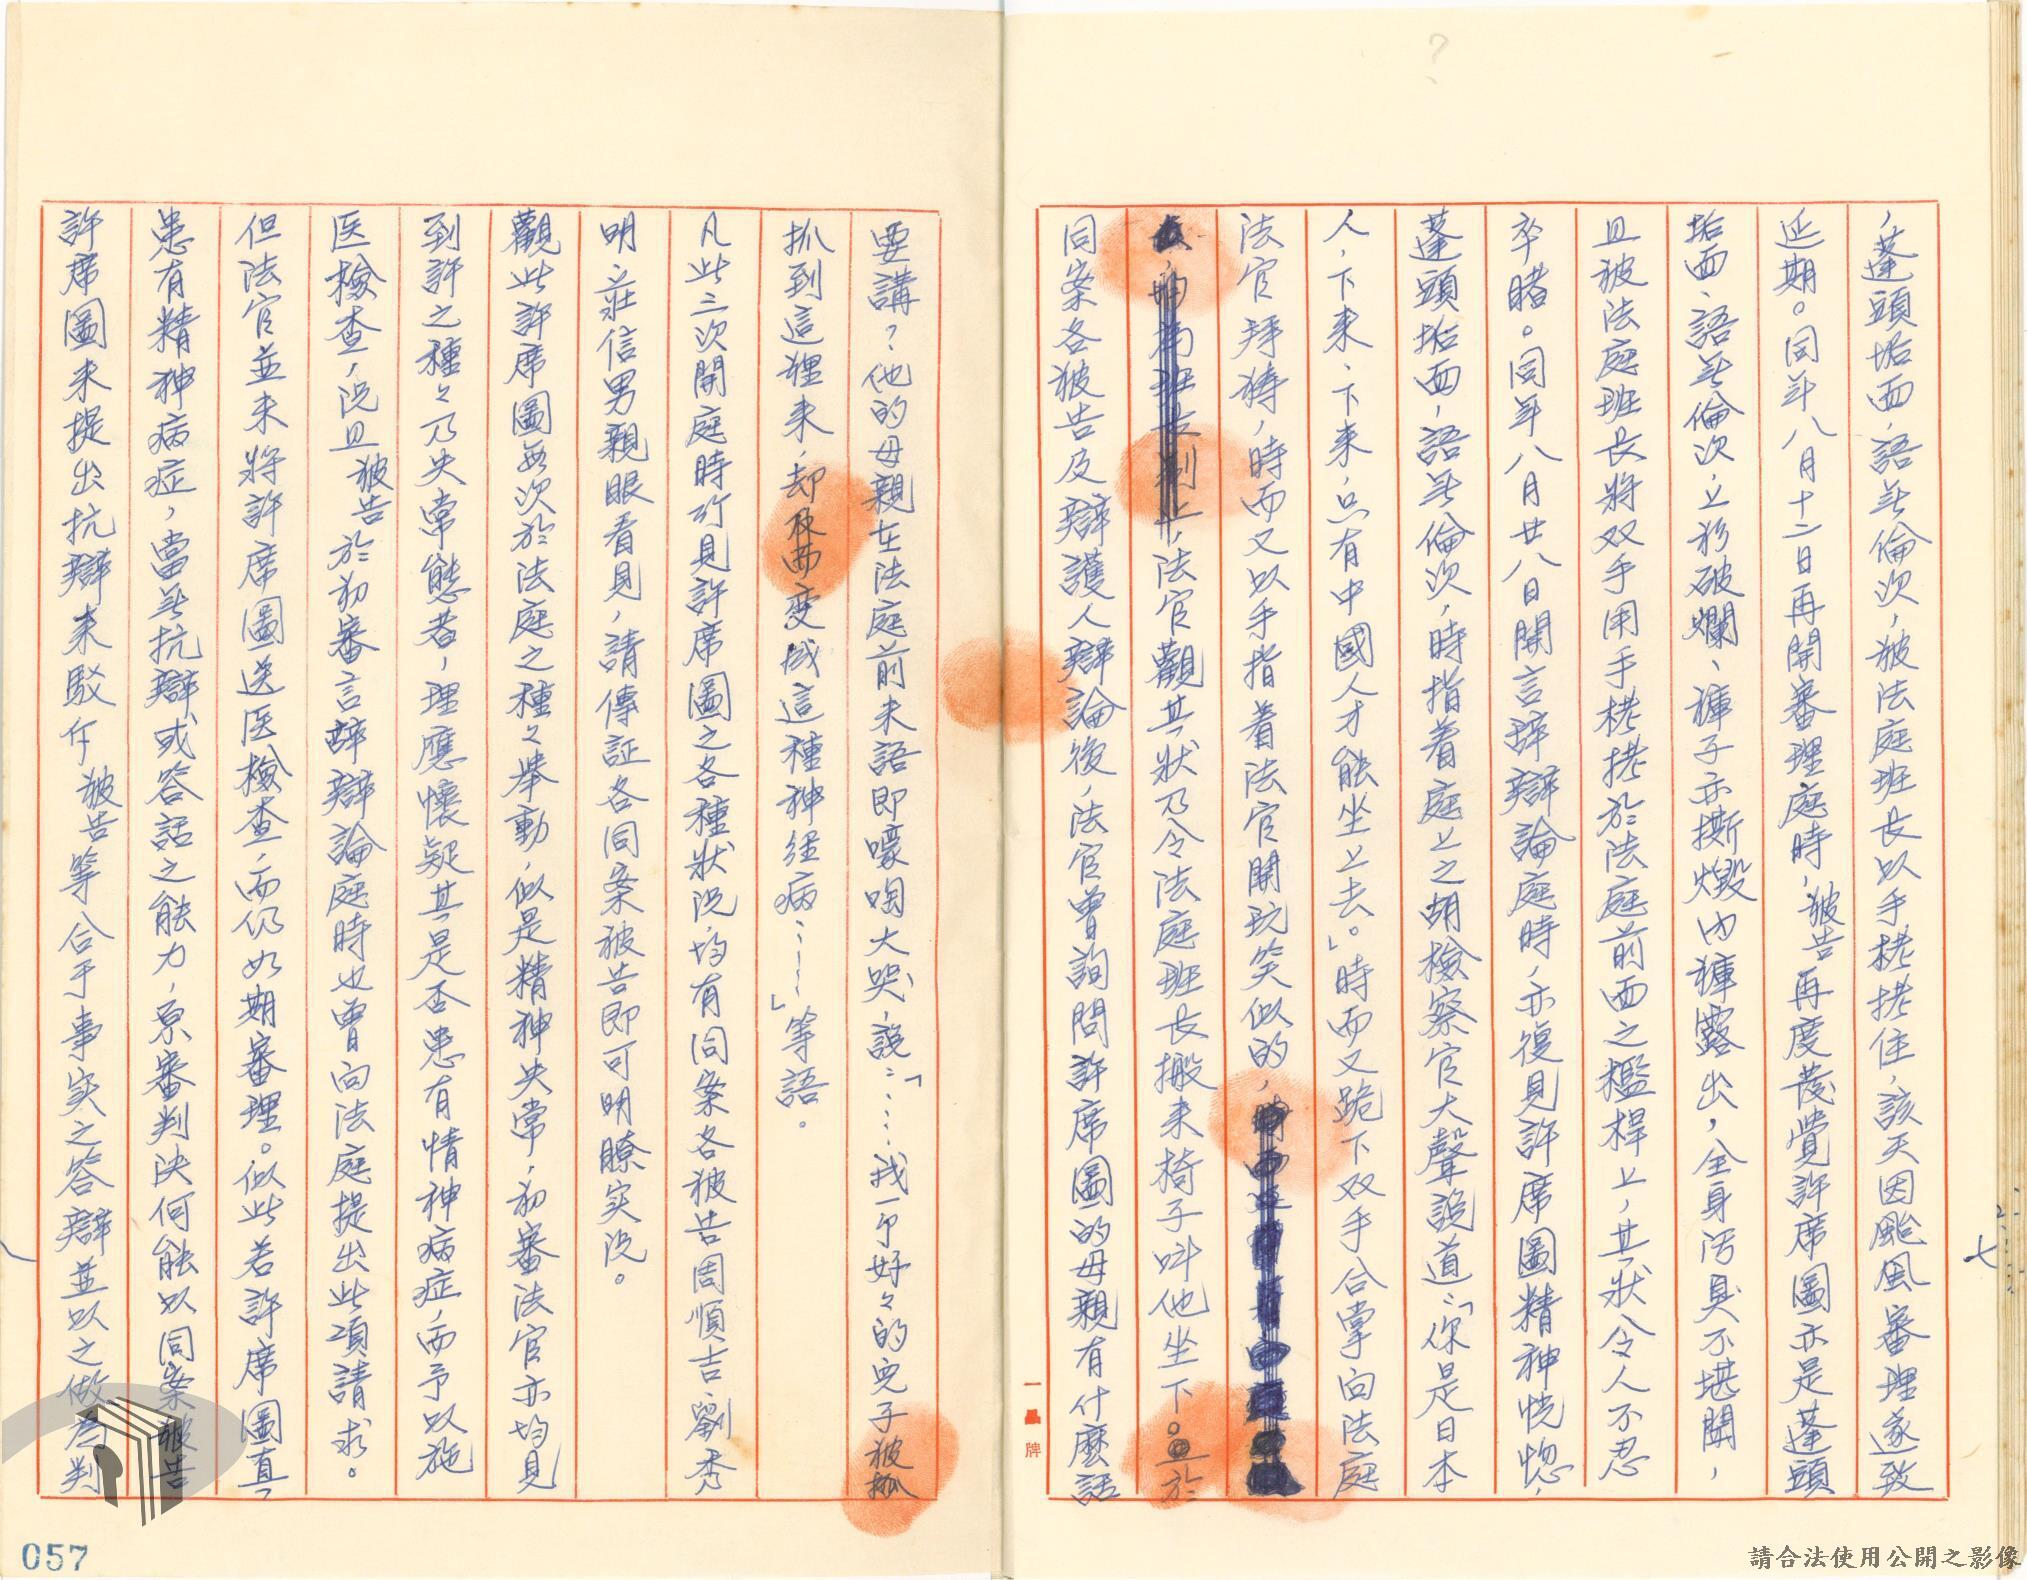 七
，蓬頭垢面，語無倫次，被法庭班長以手拷拷住，該天因颱風審理遂致
延期。同年八月十二日再開審理庭時，被告再度發覺許席圖亦是蓬頭
垢面、語無倫次，上衫破爛、褲子亦撕燬內褲露出，全身污臭不堪聞，
且被法庭班長將双手用手拷拷於法庭前面之檻桿上，其狀令人不忍
卒睹。同年八月廿八日開言辞辯論庭時，亦復見許席圖精神恍惚，
蓬頭垢面，語無倫次，時指着庭上之胡檢察官大聲說道：「你是日本
人，下来、下来，只有中國人才能坐上去。」時而又跪下双手合掌向法庭
法官拜禱，時而又以手指着法官開玩笑似的，
法官觀其狀乃令法庭班長搬来椅子叫他坐下。於
同案各被告及辯護人辯論後，法官曾詢問許席圖的母親有什麼話
要講？他的母親在法庭前未語即嚎啕大哭，說：「……我一个好々的兒子被抓
抓到這裡来，却反而变成這種神经病……」等語。
凡此三次開庭時所見許席圖之各種狀况，均有同案各被告周順吉、劉秀
明、莊信男親眼看見，請傳証各同案被告即可明瞭実况。
觀此許席圖每次於法庭之種々举動，似是精神失常，初審法官亦均見
到許之種々乃失常態者，理應懷疑其是否患有精神病症，而予以施
医檢查，况且被告於初審言辞辯論庭時也曾向法庭提出此項請求。
但法官並未將許席圖送医檢查，而仍如期審理。似此若許席圖真
患有精神病症，當無抗辯或答話之能力，原審判决何能以同案被告
許席圖未提出抗辯来駁斥被告等合于事実之答辯並以之做為判
057
一 牌
請合法使用公開之影像